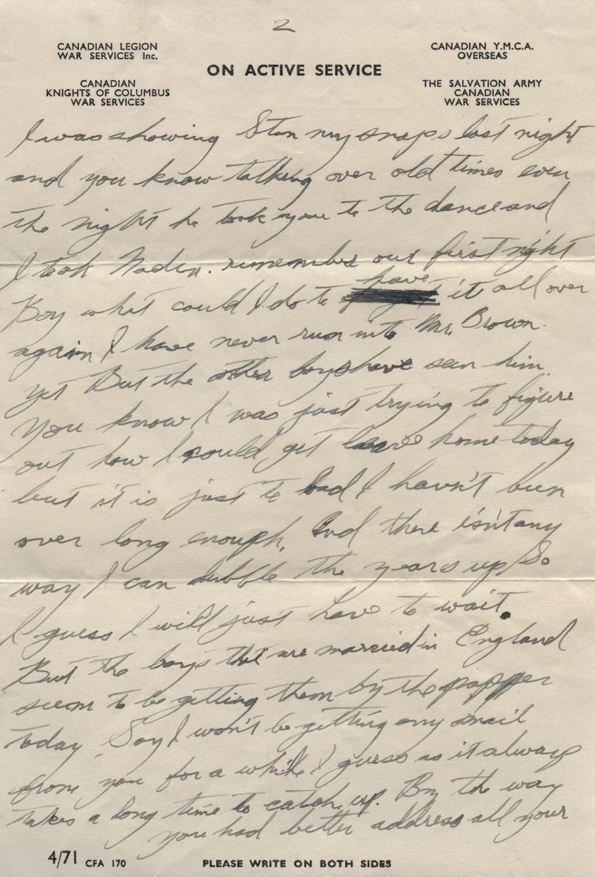 2
CANADIAN LEGION
WAR SERVICES Inc.
CANADIAN
KNIGHTS OF COLUMBUS
WAR SERVICES
ON ACTIVE SERVICE
CANADIAN Y.M.C.A.
OVERSEAS
THE SALVATION ARMY
CANADIAN
WAR SERVICES
I was showing Stan my snaps last night
and you know talking over old times even
the night he took you to the dance and
I took Naden. remember our first night
Boy what could I do to have it all over
again I have never run into Mr. Brown.
yet But the other boys have seen him.
You know I was just trying to figure
out how I could get leave home today
but it is just to bad I havn't been
over long enough. And there isn't any
way I can dubble the years up So
I guess I will just have to wait.
But the boys that are married in England
seem to be getting them by the papper
today Say I won't be getting any mail
from you for a while I guess as it always
takes a long time to catch up. By the way
you had better address all your
4/71 CFA 170
PLEASE WRITE ON BOTH SIDES